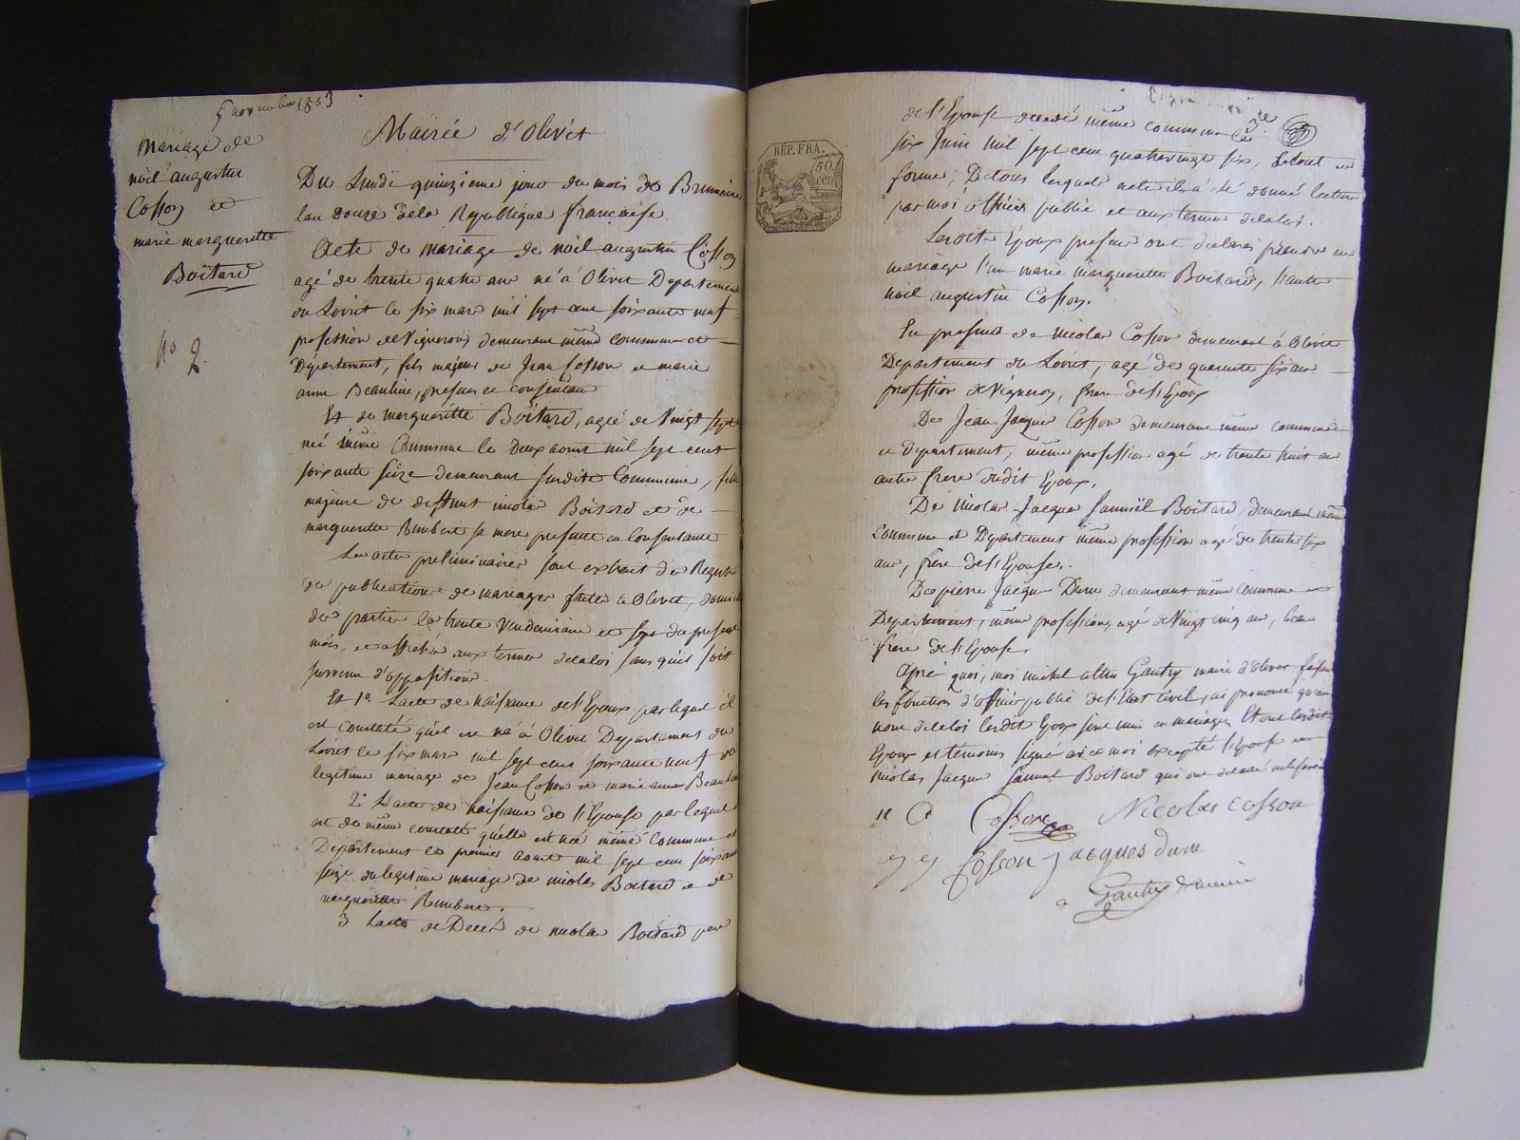 5 novembre 1803
Mariage de
noël augustin
Cosson et
marie marguerette
Boitard
No 2.
Mairie d'Olivet
Du Lundi quinzieme jour du mois de Brumaire
lan douze dela Republique française
Acte de mariage de noël augustin Cosson
agé de trente quatre ans né à Olivet Departement
du Loiret le six mars mil sept cent soixante neuf
profession de Vigneron demeurant même commune et
Département, fils majeur de Jean Cosson et marie
anne Beaulin, present et consentant
Et de marguerette Boitard, agée de Vingt sept
née même Commune le deux aout mil sept cent
soixante seize demeurant susdite Commune, fille
majeure de deffunt nicolas Boitard et de
marguerette Rimbert sa mere presente et Consentante
Les actes preliminaires sont extrait des Registre
des publications de mariages faite à Olivet, domicile
des partie le trente Vendemiaire et sept du present
mois, et affiché aux termes delaloi sans quil soit
survenu d'opposition
Et 1o Lacte de naissance del'Epoux par lequel il
est constaté quil est né à Olivet Departement du
Loiret le six mars mil sept cent soixante neuf de
legitime mariage de Jean Cosson et marie anne Beaulin
2o Lacte de naissance de l'Epouse par lequel
est de même constaté quelle est née même Commune et
Département le premier aout mil sept cent soixante
seize du legitime mariage de nicolas Boitard et de
marguerette Rimbert.
3 Lacte de Deces de nicolas Boitard pere
REP. FRA.
50
cen
de l'Epouse decedé même commune le
six Juin mil sept cent quatrevingt six, Letout en
forme; De tous lesquels actes il a été donné lecture
par moi officier public et aux termes delaloi.
Lesdits Epoux present ont declarés prendre en
mariage l'un marie marguerette Boitard, l'autre
noël augustin Cosson.
En presence de nicolas Cosson demeurant à Olivet
Departement du Loiret, agé de quarante six ans
profession de Vigneron, frere de l'Epoux
De Jean Jacques Cosson demeurant même commune
et departement, même profession agé de trente huit ans
autre frere dudit Epoux.
De nicolas Jacques Samuël Boitard demeurant même
Commune et Departement même profession agé de trente six
ans, frere de l'Epouse.
De pierre Jacques Dune demeurant même Commune et
Departement, même profession, agé de Vingt cinq ans, beau
frere de l'Epouse.
Après quoi, moi michel Gautry maire d'Olivet faisant
les fonctions d'officier public de l'Etat Civil, ai prononcé qu'au
nom delaloi lesdits Epoux sont unis en mariage, Et ont lesdits
Epoux et temoins signé avec moi excepté l'Epouse et
nicolas Jacques Samuel Boitard qui ont declaré ne le savoir
n a Cosson Nicolas Cosson
j j Cosson Jacques dune
Gautry maire